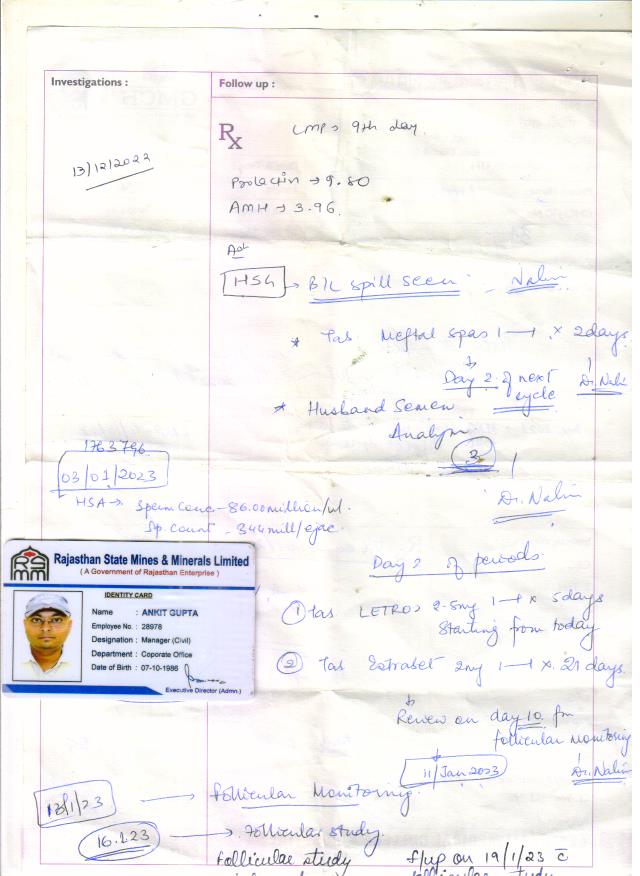 Investigations :
Follow up :
Rx
LMP→ 9th day.
13/12/2022
Prolactin → 9.80
AMH → 3.96.
Adv
HSG → B/L spill seen - Nalin
* Tab Meftal spas 1—1 x 2days
Day 2 of next cycle
Dr. Nalin
* Husband Semen
Analysis
3
1763796
03/01/2023
HSA → Sperm Conc - 86.00million/ml
Sp. Count - 344mill/ejac.
Dr. Nalin
Day 2 of periods
① Tab LETROZ 2.5mg 1—1 x 5days
Starting from today
② Tab Estrabet 2mg 1—1 x 21 days.
Review on day 10 for
follicular monitoring
11/Jan 2023
Dr. Nalin
RSMM
Rajasthan State Mines & Minerals Limited
( A Government of Rajasthan Enterprise )
IDENTITY CARD
Name : ANKIT GUPTA
Employee No. : 28978
Designation : Manager (Civil)
Department : Coporate Office
Date of Birth : 07-10-1986
Executive Director (Admn.)
13/1/23 → Follicular Monitoring.
16.1.23 → Follicular study.
Follicular study f/up on 19/1/23 c̄